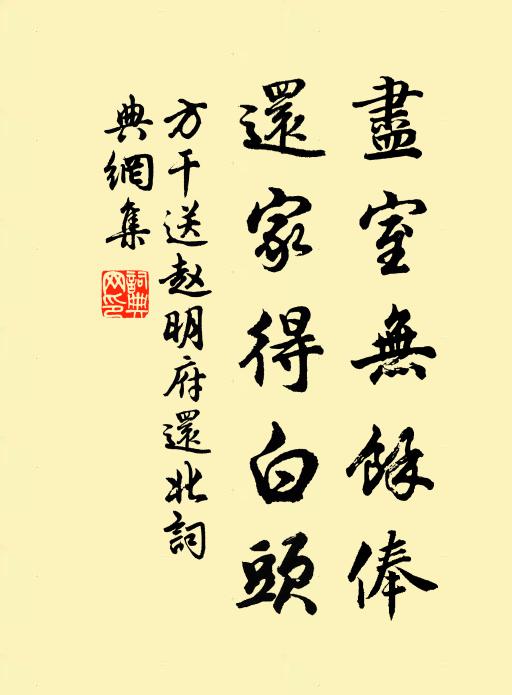 盡室無餘俸
還家得白頭
方干送赵明府還北詞
典網集
詞典
网印